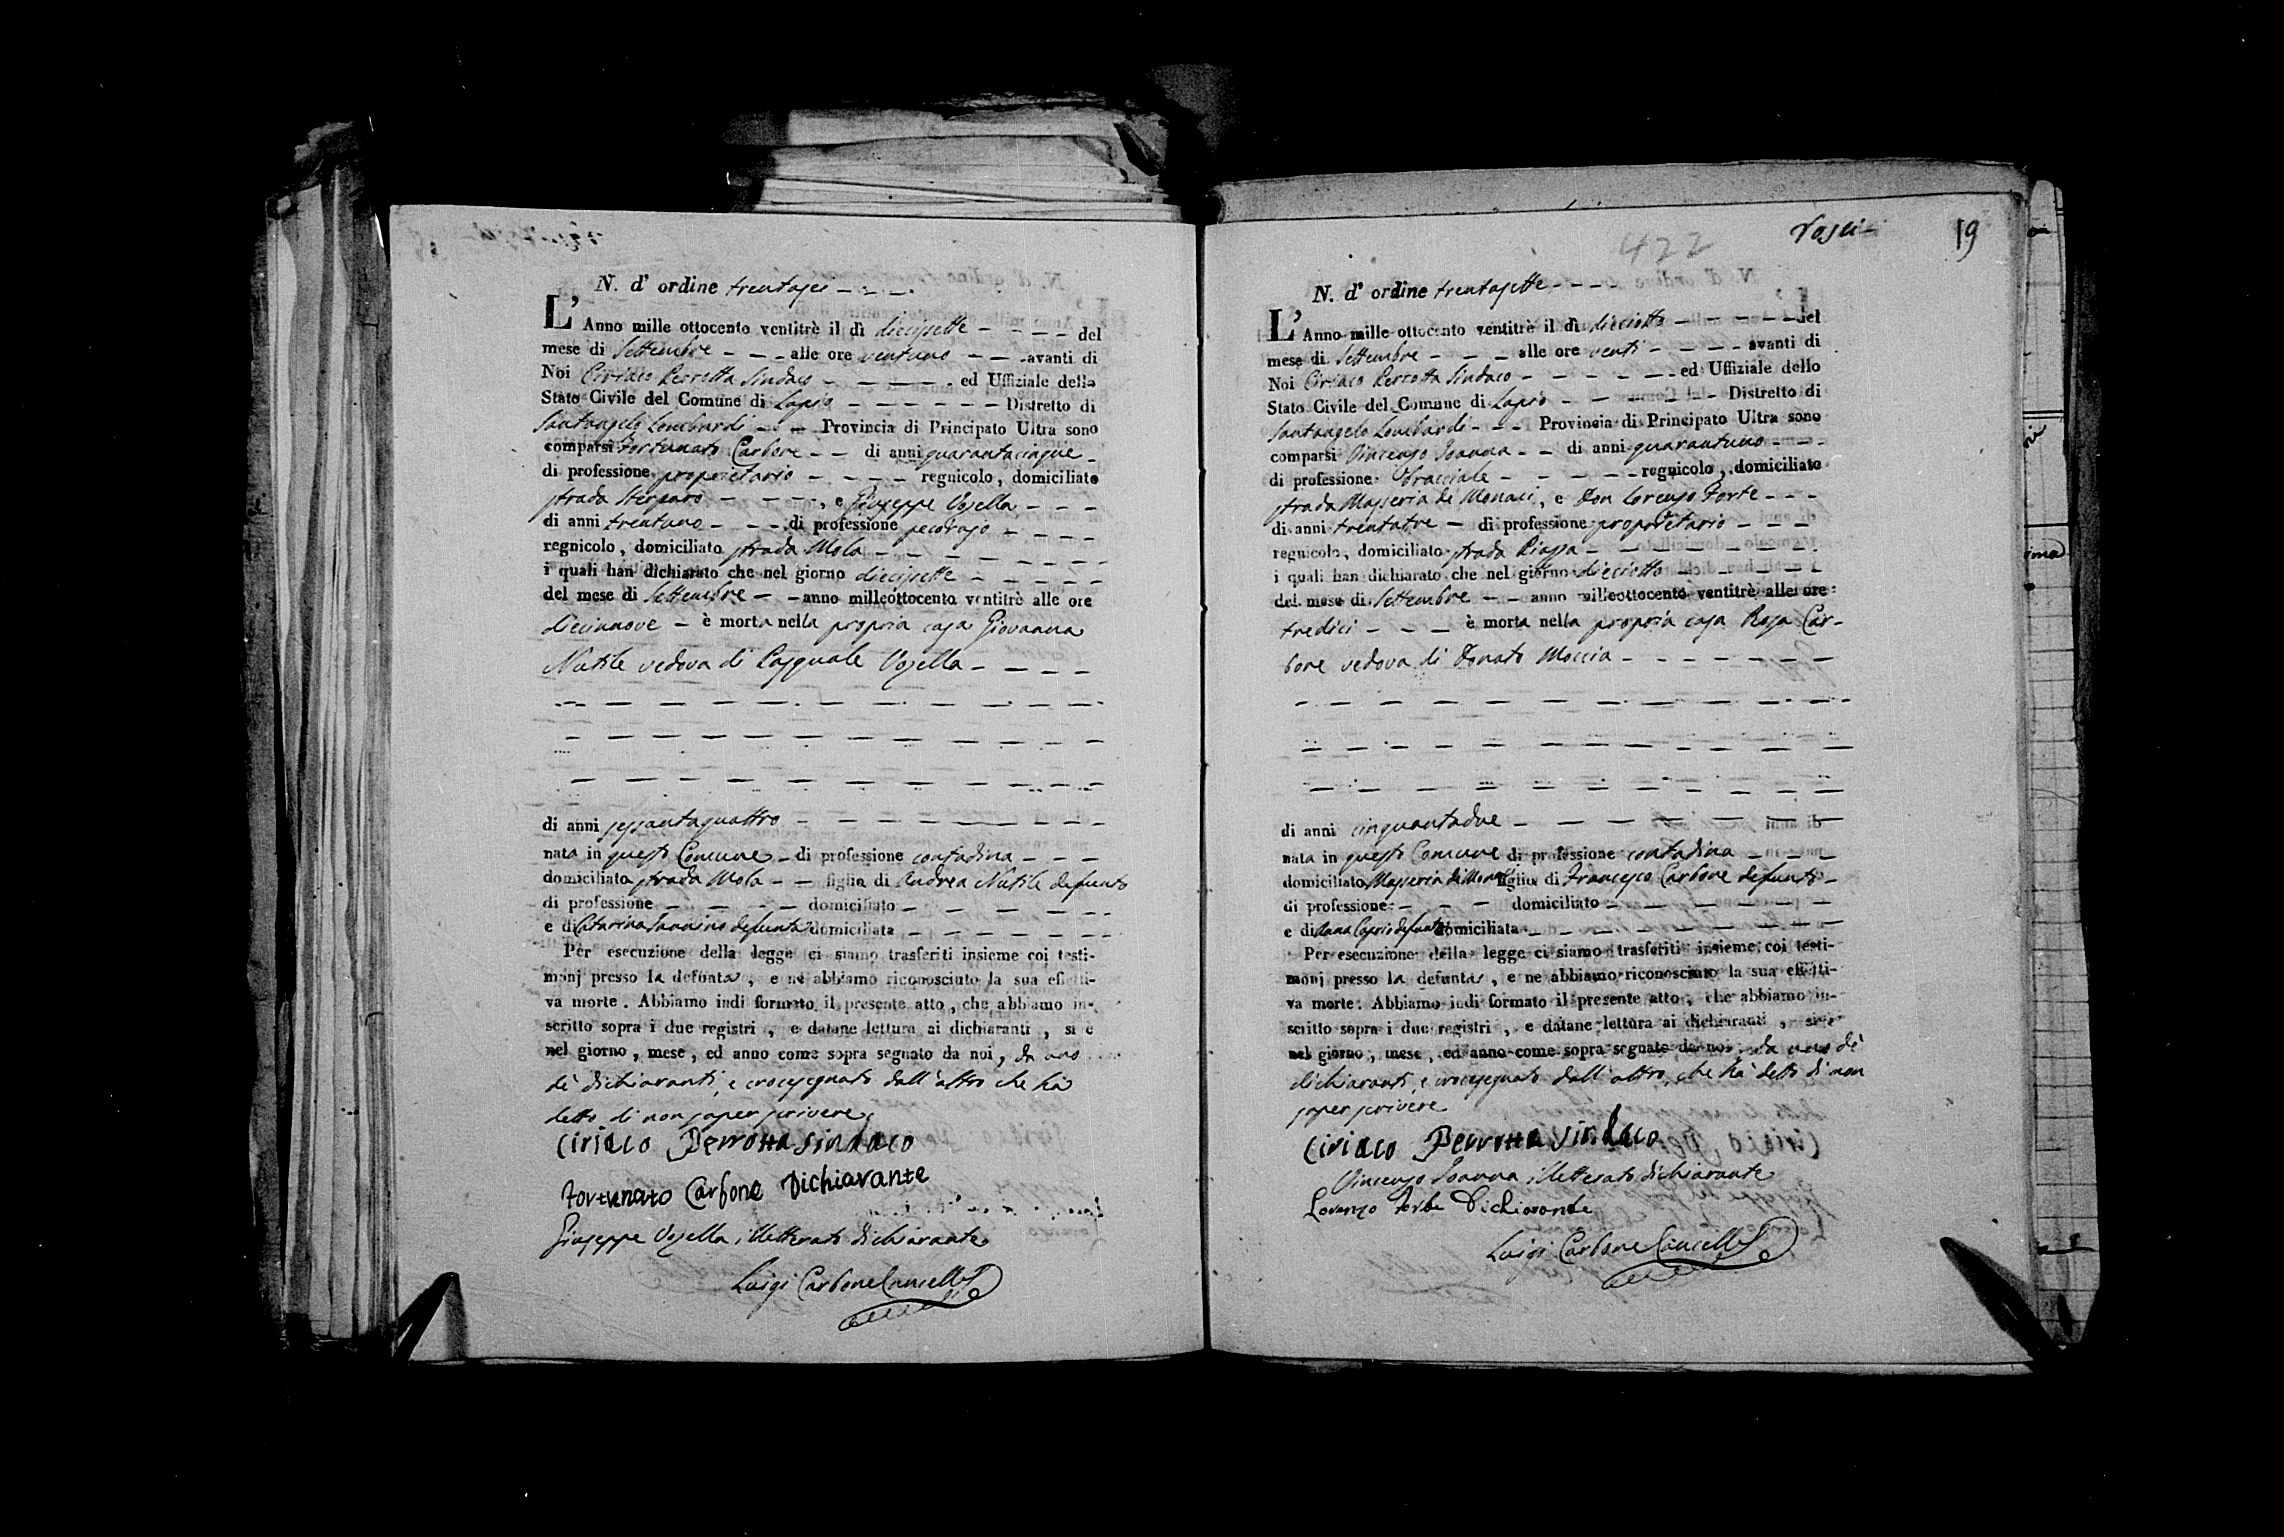 N. d' ordine trentasei
L' Anno mille ottocento ventitrè il dì diecissette del
mese di Settembre alle ore ventuno avanti di
Noi Ciriaco Perrotta Sindaco ed Uffiziale dello
Stato Civile del Comune di Lapio Distretto di
Santangelo Lombardi Provincia di Principato Ultra sono
comparsi Fortunato Carbone di anni quarantacinque
di professione proprietario regnicolo, domiciliato
strada , e Giuseppe Vosella
di anni trentuno di professione pecorajo
regnicolo, domiciliato strada Mola
i quali han dichiarato che nel giorno diecissette
del mese di Settembre anno milleottocento ventitrè alle ore
diecinnove è morta nella propria casa Giovanna
Nutile vedova di Pasquale Vosella
di anni sessantaquattro
nata in questo Comune di professione contadina
domiciliata strada Mola figlia di Andrea Nutile defunto
di professione domiciliato
e di Catarina defunta domiciliata
Per esecuzione della legge ci siamo trasferiti insieme coi testi-
monj presso la defunta, e ne abbiamo riconosciuto la sua effetti-
va morte. Abbiamo indi formato il presente atto, che abbiamo in-
scritto sopra i due registri, e datane lettura ai dichiaranti, si è
nel giorno, mese, ed anno come sopra segnato da noi, da uno
dè dichiaranti, e crocesegnato dall'altro che hà
detto di non saper scrivere
Ciriaco Perrotta Sindaco
Fortunato Carbone Dichiarante
Giuseppe Vosella illetterato dichiarante
Luigi Carbone Cancell.
422
19
N. d' ordine trentasette
L' Anno mille ottocento ventitrè il dì dieciotto del
mese di Settembre alle ore venti avanti di
Noi Ciriaco Perrotta Sindaco ed Uffiziale dello
Stato Civile del Comune di Lapio Distretto di
Santangelo Lombardi Provincia di Principato Ultra sono
comparsi Vincenzo Ioanna di anni quarantuno
di professione bracciale regnicolo, domiciliato
strada Masseria de Monaci, e Don Lorenzo Forte
di anni trentatre di professione proprietario
regnicolo, domiciliato strada Piazza
i quali han dichiarato che nel giorno dieciotto
del mese di Settembre anno milleottocento ventitrè alle ore
tredici è morta nella propria casa Rosa Car-
bone vedova di Donato Moccia
di anni cinquantadue
nata in questo Comune di professione contadina
domiciliata Masseria di figlia di Francesco Carbone defunto
di professione domiciliato
e di Anna Caprio defunta domiciliata
Per esecuzione della legge ci siamo trasferiti insieme coi testi-
monj presso la defunta, e ne abbiamo riconosciuto la sua effetti-
va morte. Abbiamo indi formato il presente atto, che abbiamo in-
scritto sopra i due registri, e datane lettura ai dichiaranti, si è
nel giorno, mese, ed anno come sopra segnato da noi, da uno dè
dichiaranti, e crocesegnato dall'altro, che hà detto di non
saper scrivere
Ciriaco Perrotta Sindaco
Vincenzo Ioanna illetterato dichiarante
Lorenzo Forte Dichiarante
Luigi Carbone Cancell.